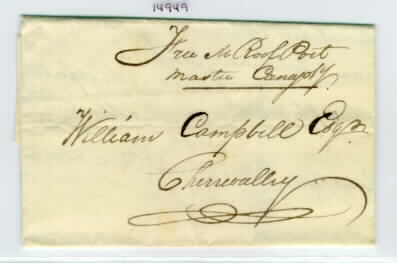 14949
Free M Roof Post
Master Canajy
William Campbell Esqr
Cherrevalley